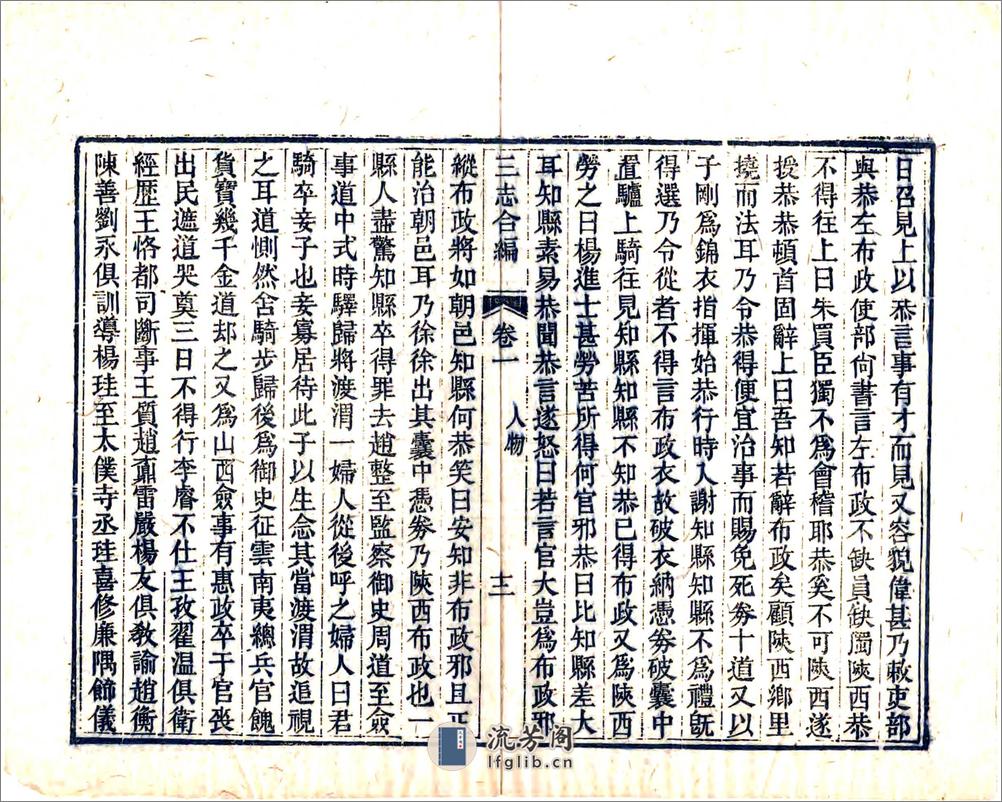 日召見上以恭言事有才而見又容貌偉甚乃敕吏部
與恭左布政使部尙書言左布政不缺員缺獨陝西恭
不得往上曰朱買臣獨不爲會稽耶恭奚不可陝西遂
授恭恭頓首固辭上曰吾知若辭布政矣顧陝西鄉里
撓而法耳乃令恭得便宜治事而賜免死劵十道又以
子剛爲錦衣指揮始恭行時入謝知縣知縣不爲禮旣
得選乃令從者不得言布政衣故破衣納憑劵破囊中
置驢上騎往見知縣知縣不知恭已得布政又爲陝西
勞之曰楊進士甚勞苦所得何官邪恭曰比知縣差大
耳知縣素易恭聞恭言遂怒曰若言官大豈爲布政邪
三志合編 卷一 人物 十三
縱布政將如朝邑知縣何恭笑曰安知非布政邪且正
能治朝邑耳乃徐徐出其囊中憑劵乃陝西布政也一
縣人盡驚知縣卒得罪去趙整至監察御史周道至僉
事道中式時驛歸將渡渭一婦人從後呼之婦人曰君
騎卒妾子也妾寡居待此子以生念其當渡渭故追視
之耳道惻然舍騎步歸後爲御史征雲南夷總兵官餽
貨寶幾千金道却之又爲山西僉事有惠政卒于官喪
出民遮道哭奠三日不得行李睿不仕王孜翟溫俱衛
經歷王恪都司斷事王質趙鼐雷嚴楊友俱敎諭趙衡
陳善劉永俱訓導楊珪至太僕寺丞珪喜修廉隅飾儀
流芳阁
lfglib.cn